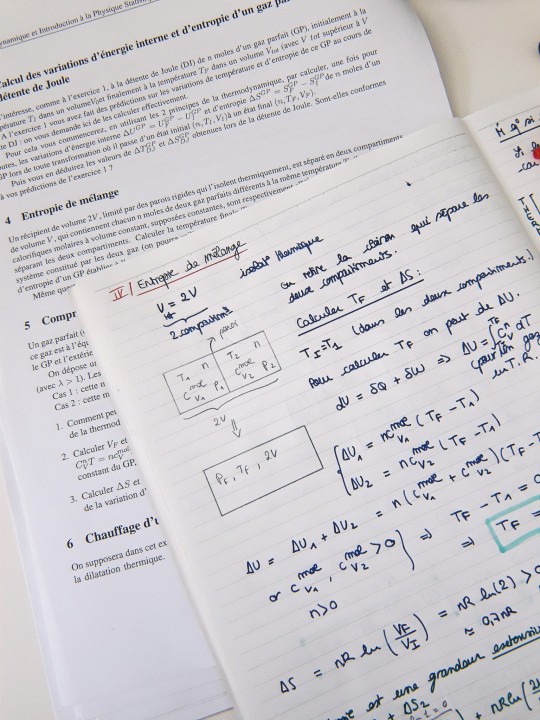 ynamique et Introduction à la Physique Statis
alcul des variations d'énergie interne et d'entropie d'un gaz pa
étente de Joule
'intéresse, comme à l'exercice 1, à la détente de Joule (DI) de n moles d'un gaz parfait (GP), initialement à la
pérature T_I dans un volume V_I et finalement à la température T_F dans un volume V_tot (avec V tot supérieur à V
A l'exercice 1 vous avez fait des prédictions sur les variations de température et d'entropie de ce GP au cours de
e DI : on vous demande ici de les calculer effectivement.
Pour cela vous commencerez, en utilisant les 2 principes de la thermodynamique, par calculer, une fois pour
outes, les variations d'énergie interne ΔU^GP = U_F^GP − U_I^GP et d'entropie ΔS^GP = S_F^GP − S_I^GP de n moles d'un
GP lors de toute transformation où il passe d'un état initial (n, T_I, V_I) à un état final (n, T_F, V_F).
Puis vous en déduirez les valeurs de ΔT et ΔS obtenues lors de la détente de Joule. Sont-elles conformes
à vos prédictions de l'exercice 1 ?
4 Entropie de mélange
Un récipient de volume 2V, limité par des parois rigides qui l'isolent thermiquement, est séparé en deux compartiments
de volume V, qui contiennent chacun n moles de deux gaz parfaits différents à la même température
calorifiques molaires à volume constant, supposées constantes, sont respectivement
séparant les deux compartiments. Calculer la température finale
système constitué par les deux gaz (on pourra
d'entropie d'un GP établies à l'
Même ques
5 Compr
Un gaz parfait (
ce gaz est à l'équ
le GP et l'extérie
On dépose u
(avec λ > 1). Les
Cas 1 : cette n
Cas 2 : cette m
1. Comment peu
de la thermod
2. Calculer V_F et
constant du GP.
3. Calculer ΔS et
de la variation d'
6 Chauffage d'u
On supposera dans cet ex
la dilatation thermique.
IV/ Entropie de mélange
V = 2V isolat thermique
tot
2 compartiments
on retire la cloison qui sépare les
deux compartiments.
paroi
T_1 n T_2 n
C_V1^mol P_1 C_V2^mol P_2
2V
⇓
P_F, T_F, 2V
Calculer T_F et ΔS :
T_I = T_1 (dans les deux compartiments.)
Pour calculer T_F on part de ΔU.
dU = δQ + δW ⇒ ΔU = ∫ C dT
ΔU_1 = n C_V1^mol (T_F − T_1)
ΔU_2 = n C_V2^mol (T_F − T_1)
ΔU = ΔU_1 + ΔU_2 = n (C_V1^mol + C_V2^mol) (T_F − T
or C_V1^mol, C_V2^mol > 0 ⇒ T_F − T_1 = 0
n > 0 ⇒ T_F =
ΔS = nR ln (V_F/V_I) = nR ln(2) > 0
≈ 0,7nR
est une grandeur
+ ΔS_2
+ nR ln(